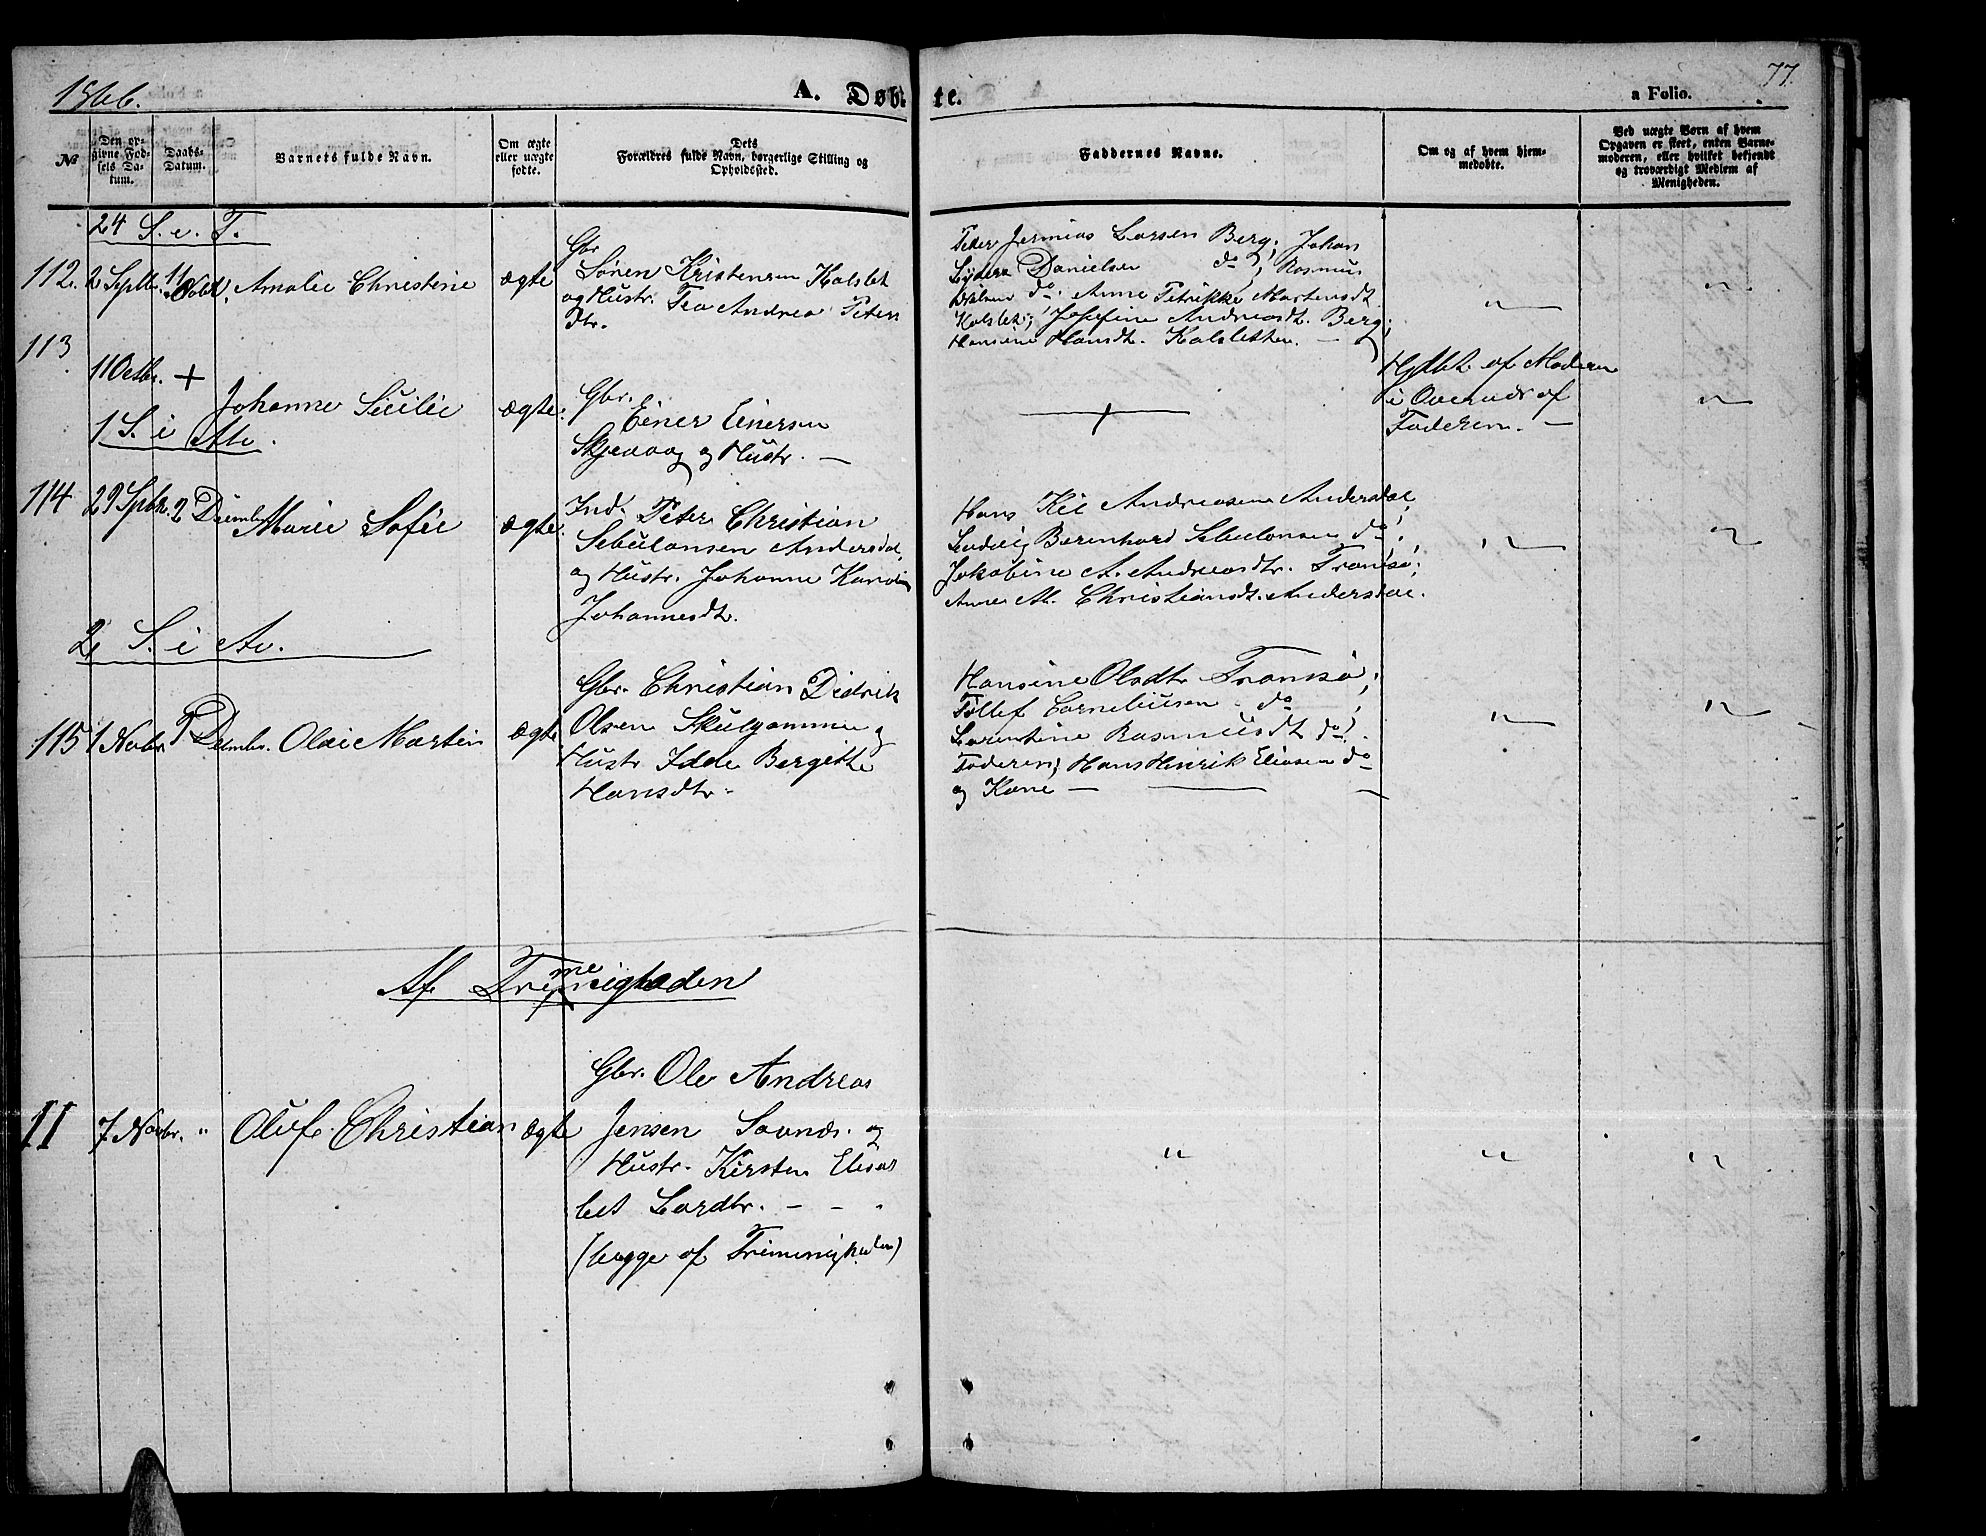 1866.
A. Døbte.
77.
a Folio.
No
Den opgivne Fødsels Datum.
Daabs-Datum.
Barnets fulde Navn.
Om ægte eller uægte fødte.
Dets Forældres fulde Navn, borgerlige Stilling og Opholdssted.
Faddernes Navne.
Om og af hvem hjemmedøbte.
Ved uægte Børn af hvem Opgaven er skeet, enten Barnemoderen, eller hvilket bekjendt og troværdigt Medlem af Menigheden.
24 S. e. T.
112. 2 Septbr. 11 Amalie Christine ægte
Gbr
Søren Kristensen Kalslet
og Hustr. Tea Andrea Peters
dtr.
Peter Jermias Larsen Berg; Johan
Danielsen do; Rasmus
Nilsen do; Anne Petrikke Martensdt
Kalslet; Josefine Andreasdt. Berg;
Hansine Hansdt. Kalsletten. —
113
11 Octbr. + Johanne Sicilie ægte.
Gbr.
Einer Einersen
Skjævaag og Hustr. —
Hjdbt. af Moderen
i Overvær af
Faderen. —
1 S. i Av.
114 29 Spbr. 2 Decembr Marie Sofie ægte.
Ind. Peter Christian
Sebulonsen Andersdal,
og Hustr. Johanne Karoline
Johannesdt.
Hans Kil Andreasen Andersdal,
Ludvig Bernhard Sebulonsen do;
Jakobine A. Andreasdtr. Tromsø;
Anne M. Christiansdt. Andersdal.
2 S. i Av.
115 1 Novbr. 9 Decembr. Olai Martin ægte
Gbr. Christian Didrik
Olsen Skulgammen og
Hustr Idde Bergitte
Hansdtr.
Hansine Olsdtr Tromsø;
Tollef Corneliusen do;
Lorentine Rasmusdt do;
Faderen; Hans Hinrik Eliasen do
og Kone —
Af Frimenigheden
II 7 Novbr. " Oluf Christian ægte
Gbr. Ole Andreas
Jensen Savnæs. og
Hustr. Kirsten Elisa
bet Larsdtr. - -
(begge af Frimenigheden)